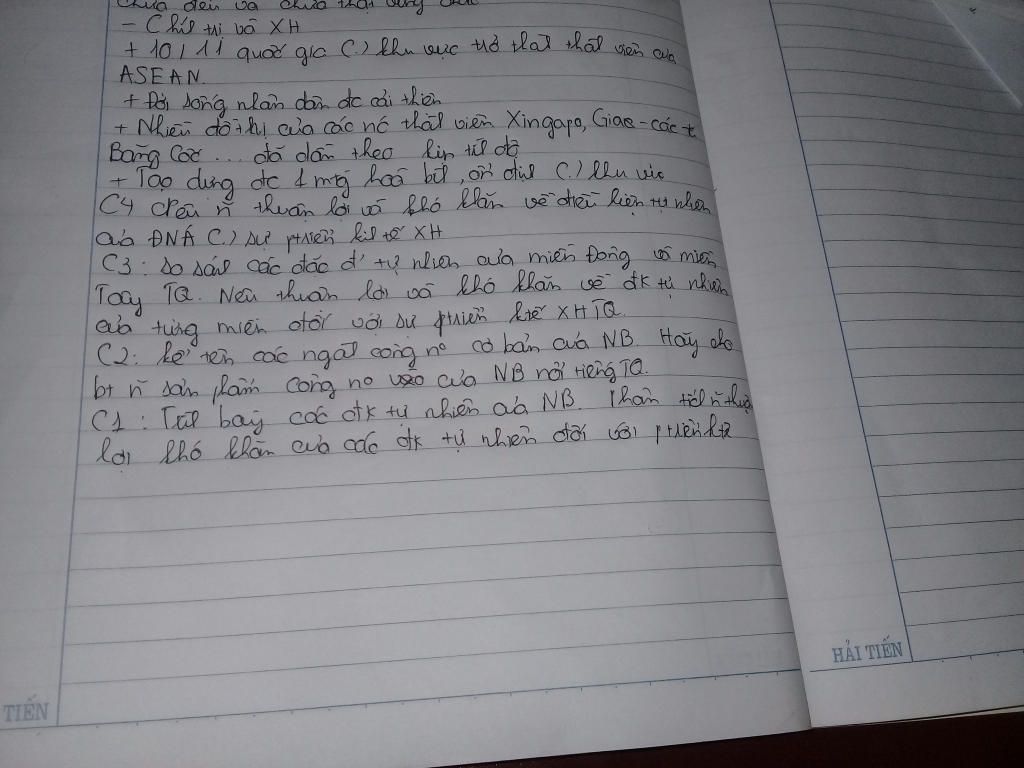 chưa đều và chưa thật vững chắc
- Chít trị và XH
+ 10/11 quốc gia (.) khu vực trở thàt thàt viên của
ASEAN
+ Đời sống nhân dân đc cải thiện
+ Nhiều đô thị của các nc thàt viên Xingapo, Giac-các-t
Băng Cốc ... đã dần theo kịp
+ Tạo dựng đc 1 mtg hoà bìt, ổn địt (.) khu vực
C4 nêu n~ thuận lợi và khó khăn về điều kiện tự nhiên
của ĐNÁ (.) sự ptriển kit tế XH
C3: so sát các đặc đ' tự nhiên của miền Đông và miền
Tây TQ. Nêu thuận lợi và khó khăn về đk tự nhiên
của từng miền đối với sự ptriển ktế XH TQ.
C2: kể tên các ngàt công no cơ bản của NB. Hãy cho
bt n~ sản phẩm công no của NB nổi tiếng TG.
C1: Trìt bày các đk tự nhiên của NB. Phân tích n~ thuận
lợi khó khăn của các đk tự nhiên đối với ptriển ktế
TIẾN
HẢI TIẾN